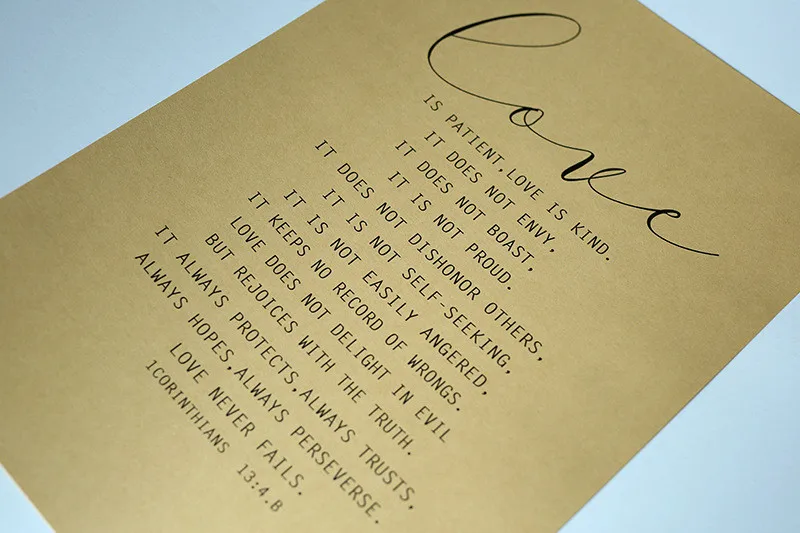 love
IS PATIENT,LOVE IS KIND.
IT DOES NOT ENVY,
IT DOES NOT BOAST,
IT IS NOT PROUD.
IT DOES NOT DISHONOR OTHERS,
IT IS NOT SELF-SEEKING,
IT IS NOT EASILY ANGERED,
IT KEEPS NO RECORD OF WRONGS.
LOVE DOES NOT DELIGHT IN EVIL
BUT REJOICES WITH THE TRUTH.
IT ALWAYS PROTECTS,ALWAYS TRUSTS,
ALWAYS HOPES,ALWAYS PERSEVERSE.
LOVE NEVER FAILS.
1CORINTHIANS 13:4.8